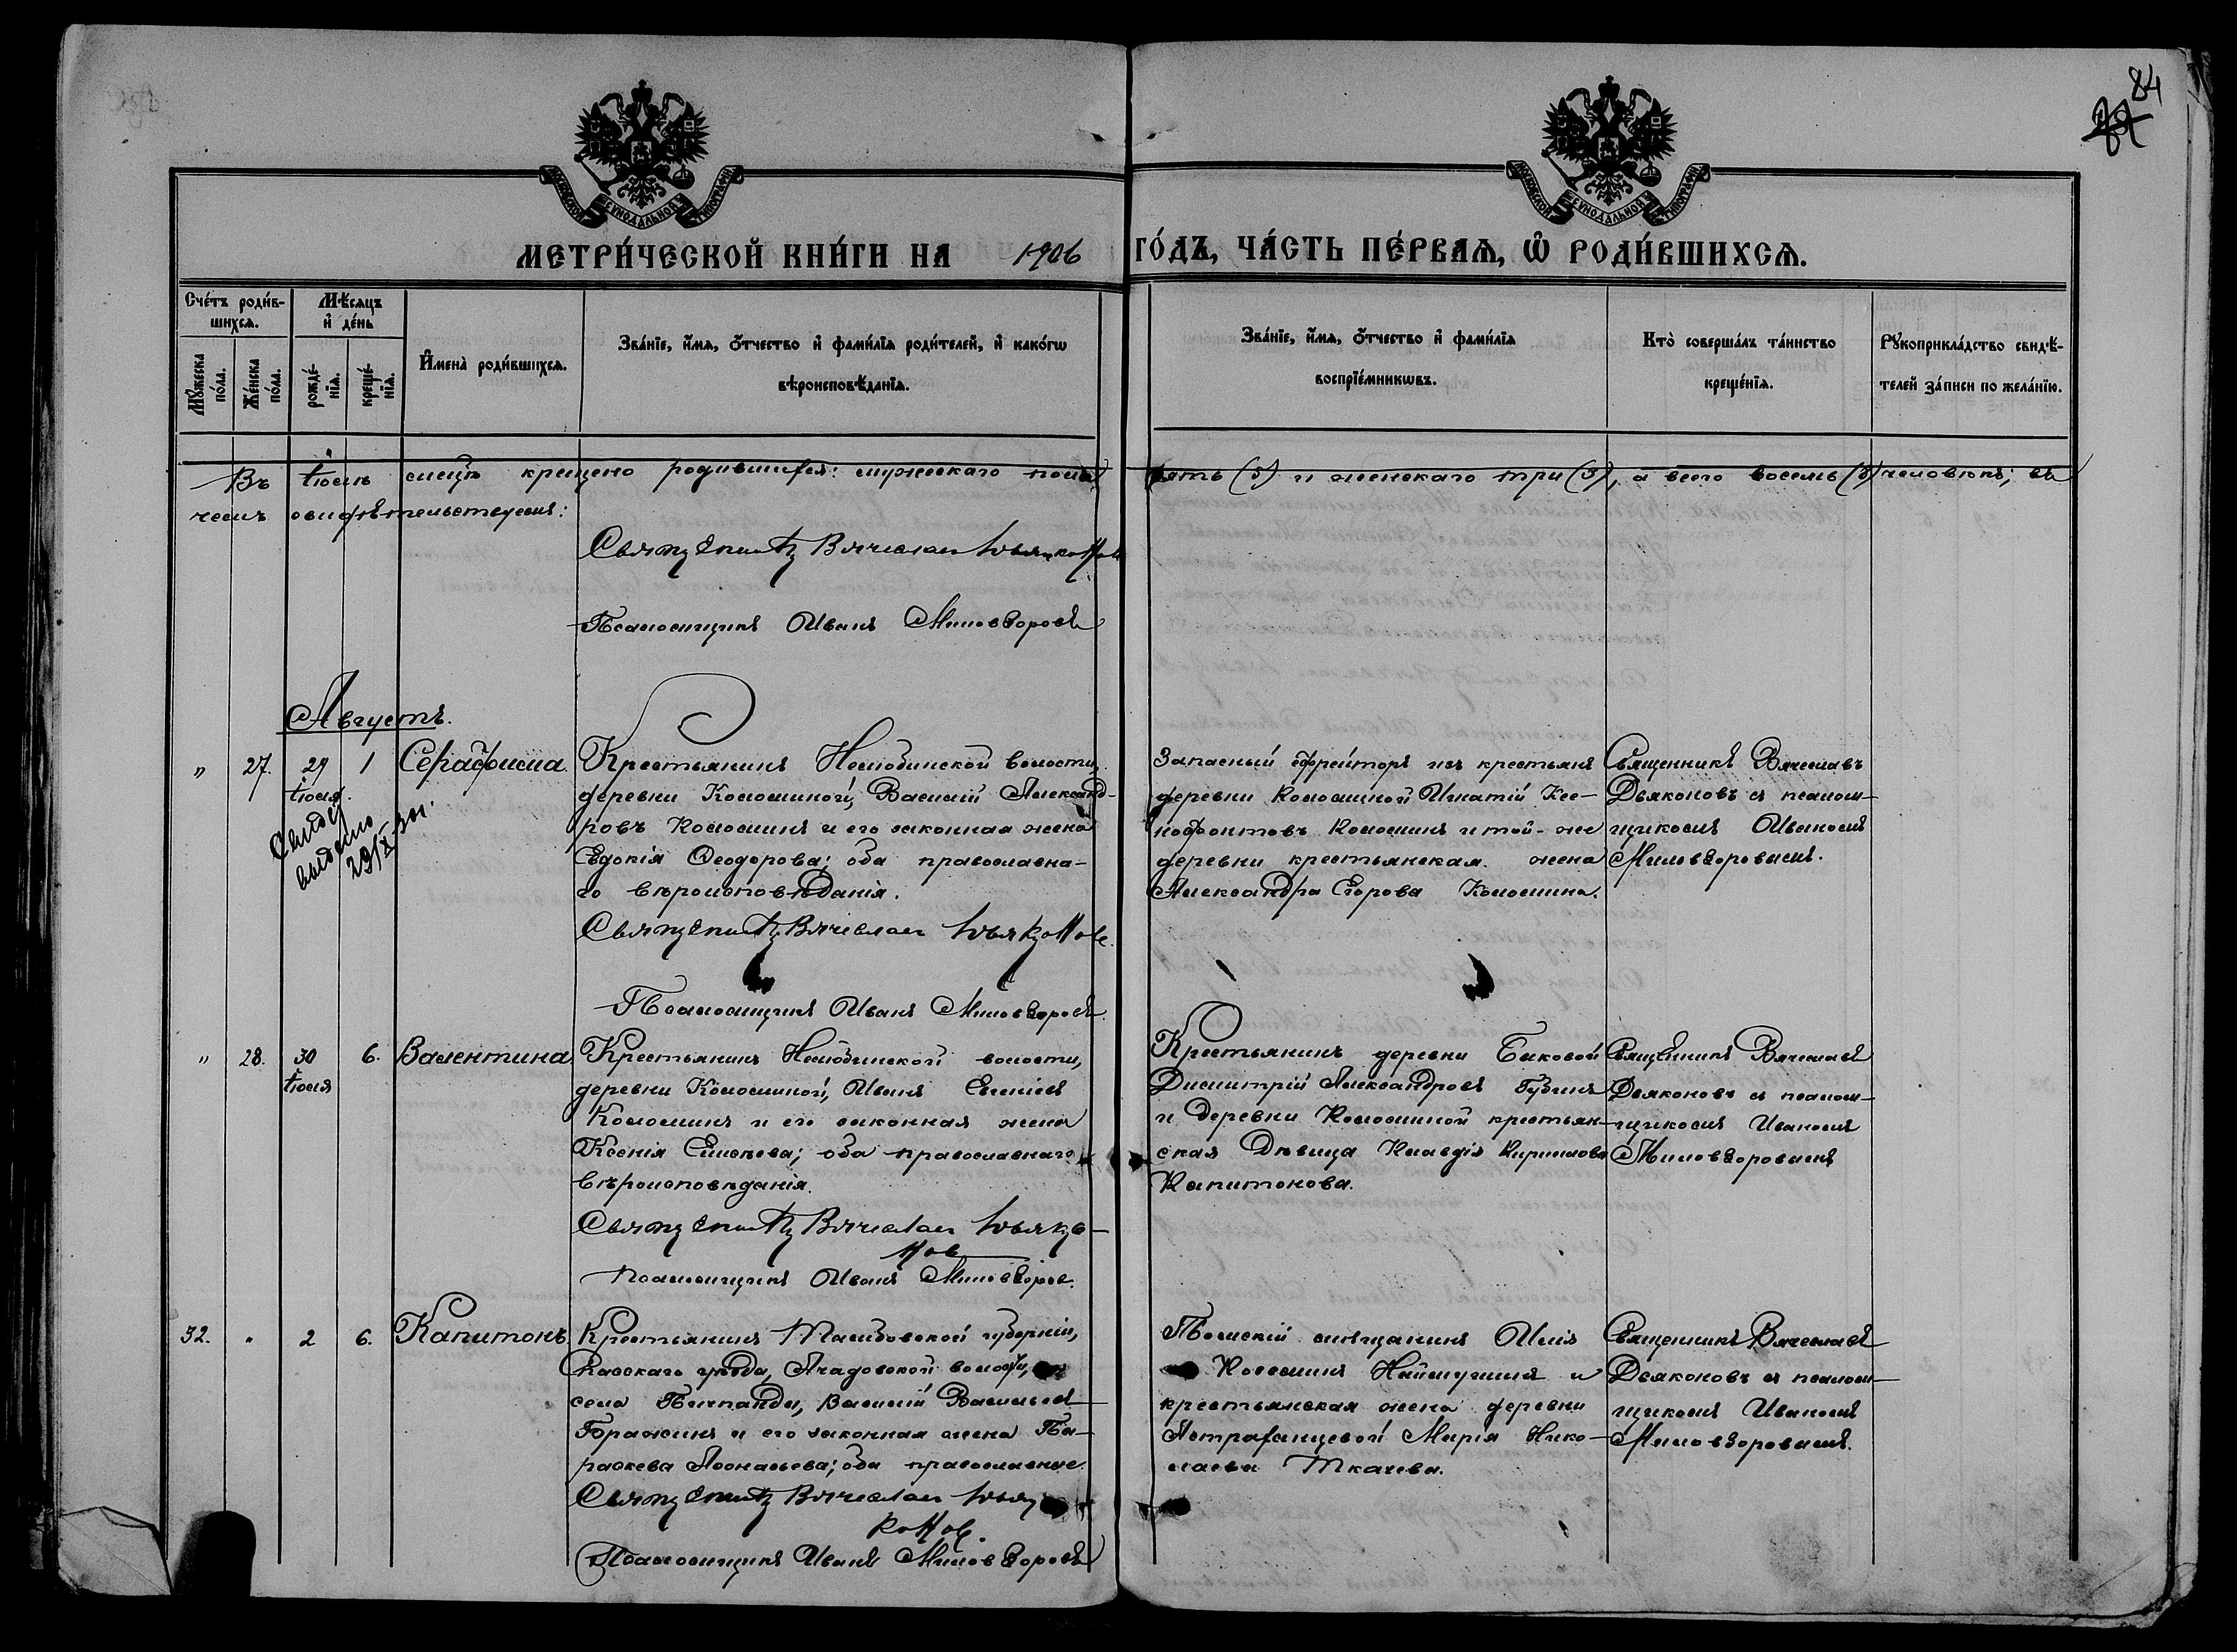 84
МОСКОВСКОЙ СѴНОДАЛЬНОЙ ТИПОГРАФІИ
МОСКОВСКОЙ СѴНОДАЛЬНОЙ ТИПОГРАФІИ
МЕТРИ́ЧЕСКОЙ КНИ́ГИ НА 1906 ГО́ДЪ, ЧА́СТЬ ПЕ́РВАѦ, Ѽ РОДИ́ВШИХСѦ.
Сче́тъ роди́в-
шихсѧ.
Мꙋ́жеска
по́ла.
Же́нска
по́ла.
Мѣ́сѧцъ
и҆ де́нь
рожде́-
нїѧ.
креще́-
нїѧ.
И҆мена̀ роди́вшихсѧ.
Зва́нїе, и҆́мѧ, ѻ҆́тчество и҆ фами́лїѧ роди́телей, и҆ како́гѡ
вѣроисповѣ́данїѧ.
Зва́нїе, и҆́мѧ, ѻ҆́тчество и҆ фами́лїѧ
воспрїе́мникѡвъ.
Кто̀ соверша́лъ та́инство
креще́нїѧ.
Рꙋкоприкла́дство свидѣ́-
телей за́писи по жела́нїю.
Въ іюлѣ мѣсяцѣ крещено родившихся: мужескаго пола пять (5) и женскаго три (3), а всего восемь (8) человѣкъ; въ
чемъ свидѣтельствуемъ:
Священникъ Вячеслав Дьяконов
Псаломщикъ Иванъ Миловзоровъ
Августъ.
" 27. 29 1 Серафима.
іюля.
Крестьянинъ Нелюбинской волости,
деревни Коломиной, Василій Александ-
ровъ Коломинъ и его законная жена
Евдокія Ѳеодорова; оба православна-
го вѣроисповѣданія.
Священникъ Вячеслав Дьяконов.
Псаломщикъ Иванъ Миловзоровъ.
Запасный ефрейторъ изъ крестьянъ
деревни Коломиной Игнатій Ксе-
нофонтовъ Коломинъ и той-же
деревни крестьянская жена
Александра Егорова Коломина.
Священникъ Вячеславъ
Дьяконовъ съ псалом-
щикомъ Иваномъ
Миловзоровымъ.
" 28. 30 6. Валентина
іюля
Крестьянинъ Нелюбинской волости,
деревни Коломиной, Иванъ
Коломинъ и его законная жена
Ксенія; оба православнаго
вѣроисповѣданія.
Священникъ Вячеслав Дьяко-
нов
Псаломщикъ Иванъ Миловзоров.
Крестьянинъ деревни Быковой
Димитрій Александровъ
и деревни Коломиной крестьян-
ская дѣвица Клавдія Кириллова
Капитонова.
Священникъ Вячеславъ
Дьяконовъ съ псалом-
щикомъ Иваномъ
Миловзоровымъ
32. " 2 6. Капитонъ.
Крестьянинъ Тамбовской губерніи,
уѣзда, волости,
села, Василій Васильевъ
и его законная жена Па-
раскева; оба православные.
Священникъ Вячеслав Дья
конов.
Псаломщикъ Иванъ Миловзоровъ
Томскій мѣщанинъ
и
крестьянская жена деревни
Астраханцевой Марія Нико-
лаева Ткачева.
Священникъ Вячеславъ
Дьяконовъ съ псалом-
щикомъ Иваномъ
Миловзоровымъ.